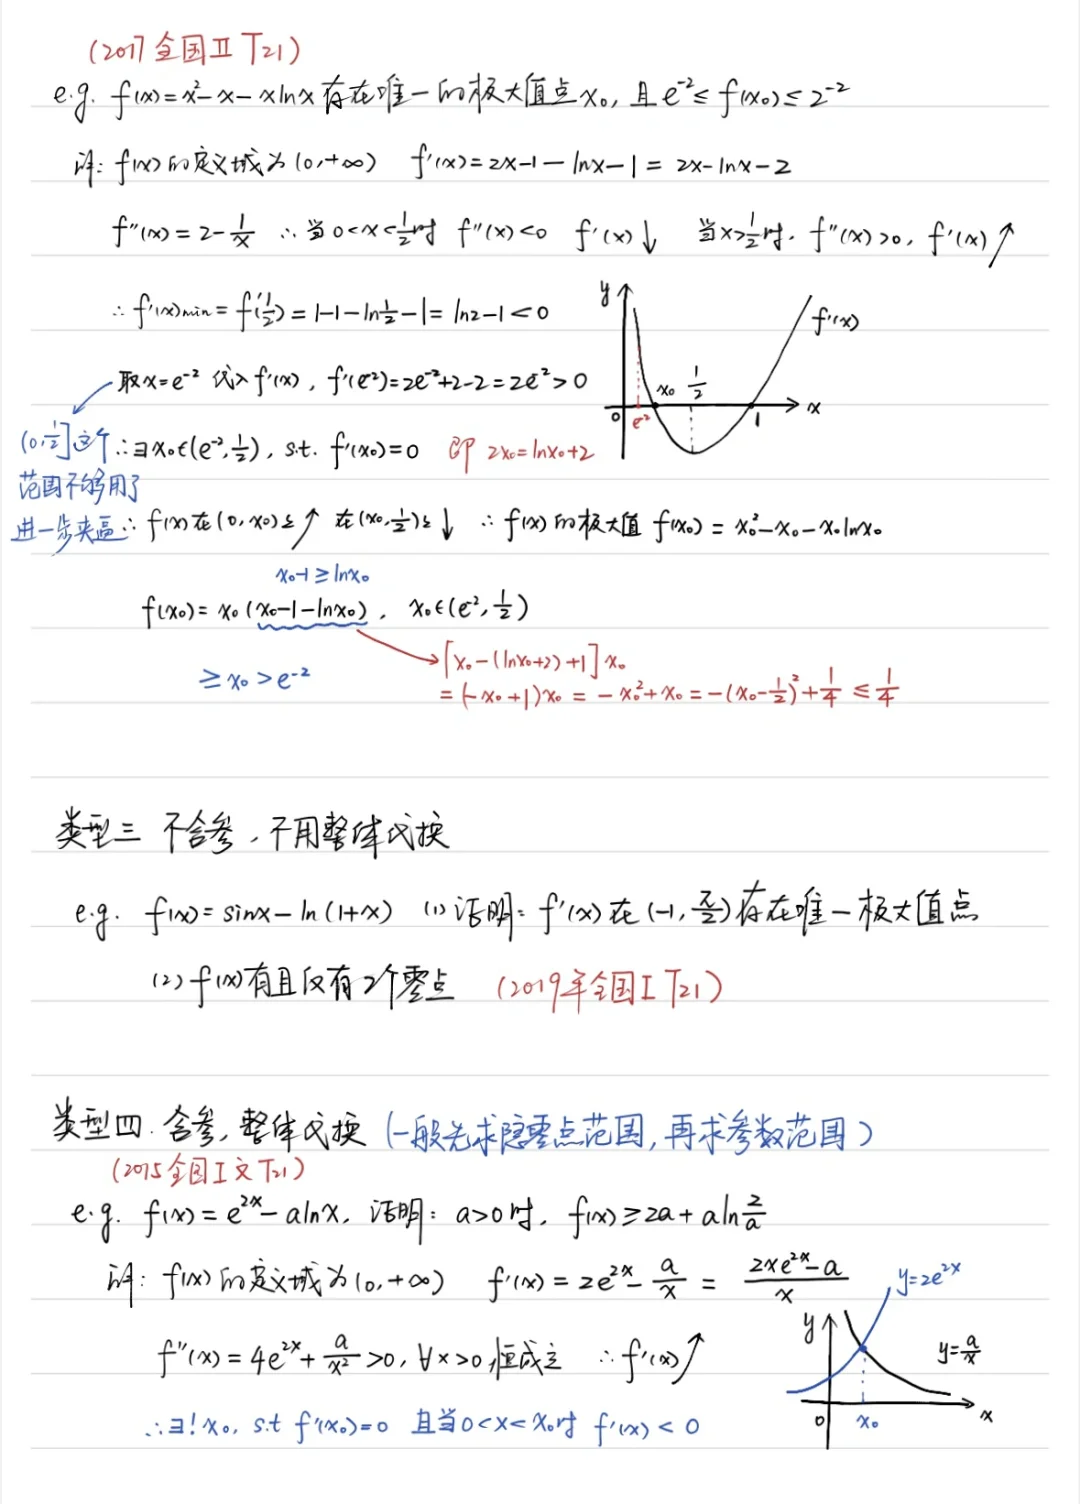 (2017全国Ⅱ T21)
e.g. f(x)=x²-x-xlnx存在唯一的极大值点x₀, 且e⁻²≤f(x₀)≤2⁻²
证: f(x)的定义域为(0,+∞) f'(x)=2x-1-lnx-1=2x-lnx-2
f''(x)=2-1/x ∴当0<x<1/2时 f''(x)<0 f'(x)↓ 当x>1/2时, f''(x)>0, f'(x)↗
∴f'(x)min=f'(1/2)=1-1-ln1/2-1=ln2-1<0
取x=e⁻² 代入f'(x), f'(e⁻²)=2e⁻²+2-2=2e⁻²>0
y
f'(x)
x₀ 1/2
0 e⁻² 1 x
(0,1/2]这个
范围不够用了
进一步夹逼
∴∃x₀∈(e⁻²,1/2), s.t. f'(x₀)=0 即 2x₀=lnx₀+2
∴f(x)在(0,x₀)上↗ 在(x₀,1/2)上↓ ∴f(x)的极大值f(x₀)=x₀²-x₀-x₀lnx₀
x₀-1≥lnx₀
f(x₀)=x₀(x₀-1-lnx₀), x₀∈(e⁻²,1/2)
→[x₀-(lnx₀+2)+1]x₀
≥x₀>e⁻²
=(-x₀+1)x₀=-x₀²+x₀=-(x₀-1/2)²+1/4≤1/4
类型三 不含参,不用整体代换
e.g. f(x)=sinx-ln(1+x) (1)证明: f'(x)在(-1,π/2)存在唯一极大值点
(2)f(x)有且仅有2个零点 (2019年全国Ⅰ T21)
类型四. 含参, 整体代换 (一般先求隐零点范围,再求参数范围)
(2015全国Ⅰ文T21)
e.g. f(x)=e²ˣ-alnx, 证明: a>0时, f(x)≥2a+aln2/a
证: f(x)的定义域为(0,+∞) f'(x)=2e²ˣ-a/x=(2xe²ˣ-a)/x
y=2e²ˣ
y
y=a/x
f''(x)=4e²ˣ+a/x²>0, ∀x>0,恒成立 ∴f'(x)↗
0 x₀ x
∴∃!x₀, s.t f'(x₀)=0 且当0<x<x₀时 f'(x)<0